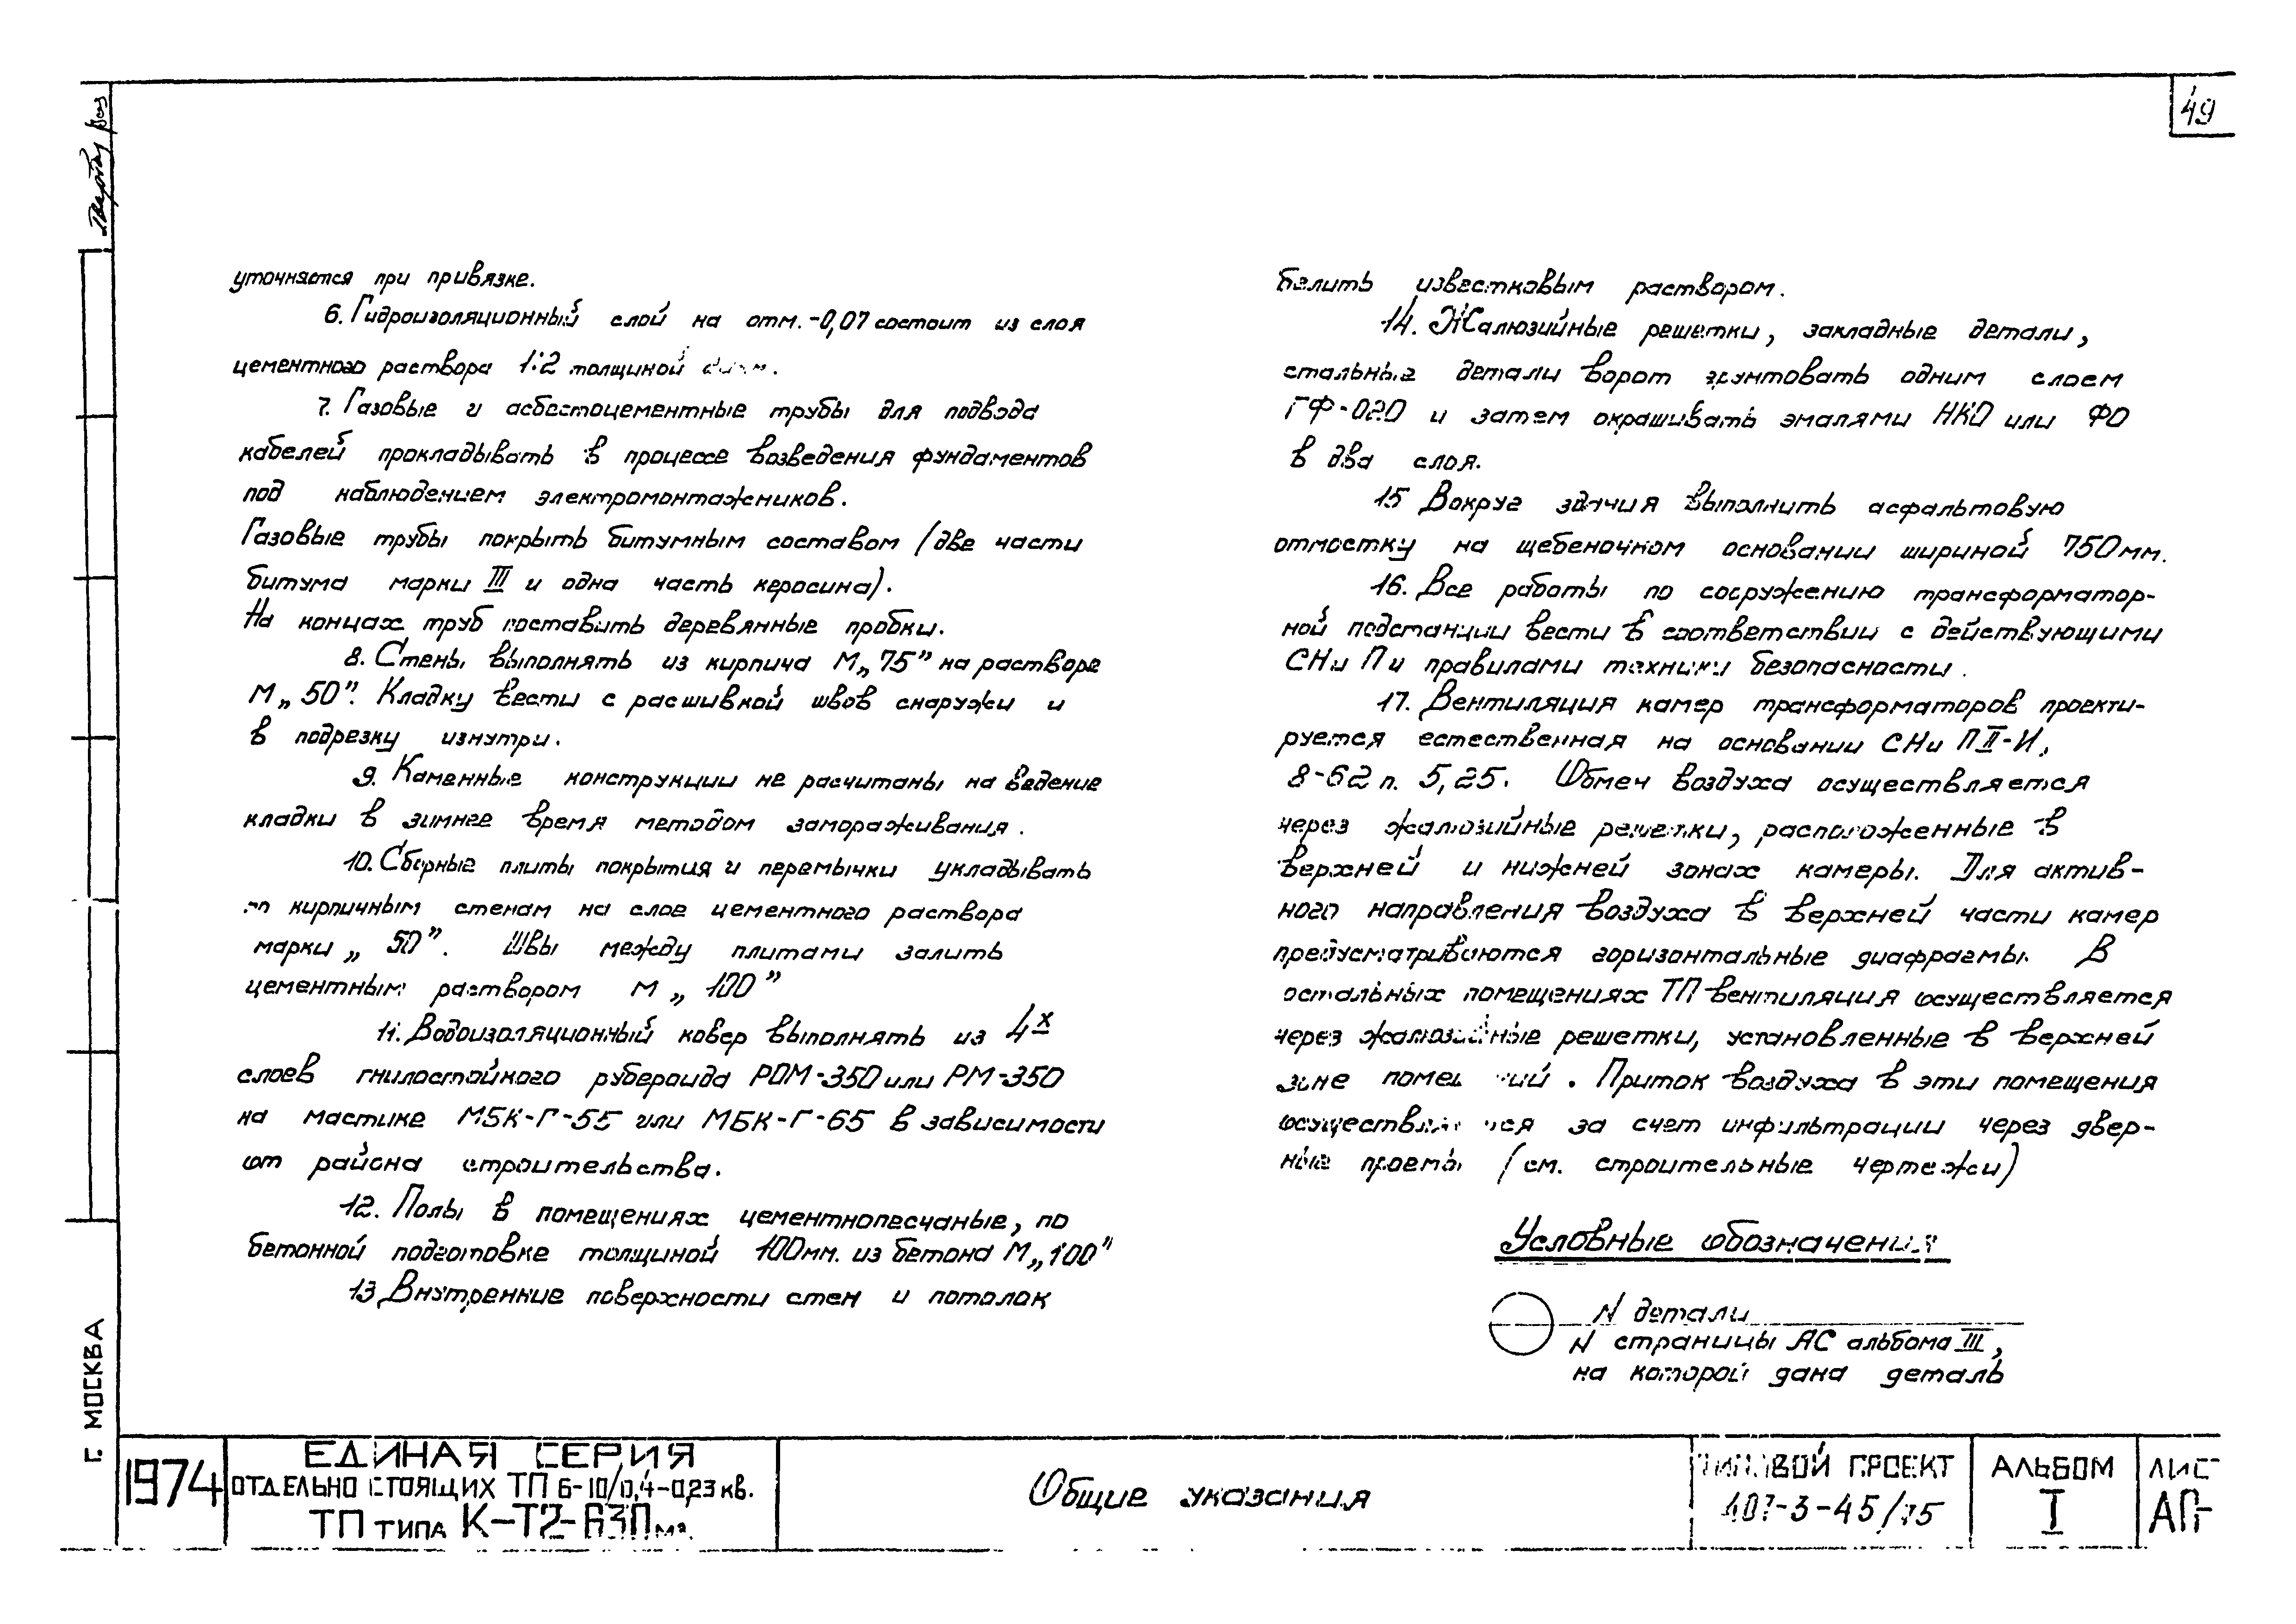 49
уточняется при привязке.
6. Гидроизоляционный слой на отм. -0,07 состоит из слоя
цементного раствора 1:2 толщиной
7. Газовые и асбестоцементные трубы для подвода
кабелей прокладывать в процессе возведения фундаментов
под наблюдением электромонтажников.
Газовые трубы покрыть битумным составом (две части
битума марки III и одна часть керосина).
На концах труб поставить деревянные пробки.
8. Стены выполнять из кирпича М„75” на растворе
М„50”. Кладку вести с расшивкой швов снаружи и
в подрезку изнутри.
9. Каменные конструкции не расчитаны на ведение
кладки в зимнее время методом замораживания.
10. Сборные плиты покрытия и перемычки укладывать
по кирпичным стенам на слое цементного раствора
марки „50”. Швы между плитами залить
цементным раствором М„100”
11. Водоизоляционный ковер выполнять из 4х
слоев гнилостойкого рубероида РОМ-350 или РМ-350
на мастике МБК-Г-55 или МБК-Г-65 в зависимости
от района строительства.
12. Полы в помещениях цементнопесчаные, по
бетонной подготовке толщиной 100мм. из бетона М„100”
13 Внутренние поверхности стен и потолок
белить известковым раствором.
14. Жалюзийные решетки, закладные детали,
стальные детали ворот грунтовать одним слоем
ГФ-020 и затем окрашивать эмалями НКО или ФО
в два слоя.
15 Вокруг здания выполнить асфальтовую
отмостку на щебеночном основании шириной 750мм.
16. Все работы по сооружению трансформатор-
ной подстанции вести в соответствии с действующими
СНиП и правилами техники безопасности.
17. Вентиляция камер трансформаторов проекти-
руется естественная на основании СНиП II-И,
8-62 п. 5,25. Обмен воздуха осуществляется
через жалюзийные решетки, расположенные в
верхней и нижней зонах камеры. Для актив-
ного направления воздуха в верхней части камер
предусматриваются горизонтальные диафрагмы. В
остальных помещениях ТП вентиляция осуществляется
через жалюзийные решетки, установленные в верхней
зоне помещений. Приток воздуха в эти помещения
осуществляется за счет инфильтрации через двер-
ные проемы (см. строительные чертежи)
Условные обозначения
N детали
N страницы АС альбома III,
на которой дана деталь
Г. МОСКВА
1974
ЕДИНАЯ СЕРИЯ
ОТДЕЛЬНО СТОЯЩИХ ТП 6-10/0,4-0,23 кв.
ТП ТИПА К-Т2-630
Общие указания
ТИПОВОЙ ПРОЕКТ
407-3-45/75
АЛЬБОМ
I
ЛИС
АП-